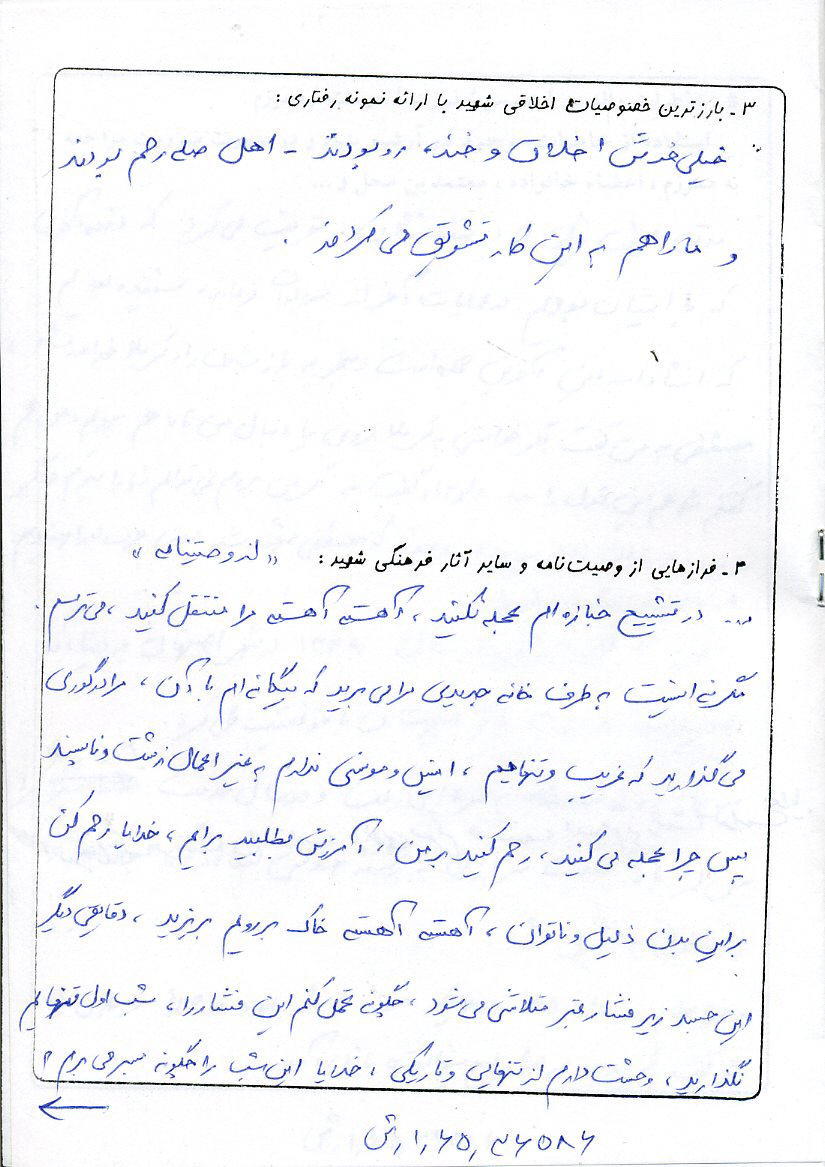 ۳ـ بارزترین خصوصیات اخلاقی شهید با ارائه نمونه رفتاری:
خیلی خوش اخلاق و خنده رو بودند ـ اهل صله رحم بودند
و ما را هم به این کار تشویق می کردند.
۴ـ فرازهایی از وصیت‌نامه و سایر آثار فرهنگی شهید: «از وصیتنامه»
... در تشییع جنازه ام عجله نکنید، آهسته آهسته مرا منتقل کنید، می ترسم.
مگر نه اینست به طرف خانه جدیدی مرا می برید که بیگانه ام با آن، مرا در گوری
می گذارید که غریب و تنهایم، انیس و مونسی ندارم به غیر اعمال زشت و ناپسند
پس چرا عجله می کنید، رحم کنید بر من، آمرزش بطلبید برایم، خدایا رحم کن
بر این بدن ذلیل و ناتوان، آهسته آهسته خاک بر رویم بریزید، دقایقی دیگر
این جسد زیر فشار قبر متلاشی می شود، چگونه تحمل کنم این فشار را، شب اول تنهایم
نگذارید، وحشت دارم از تنهایی و تاریکی، خدایا این شب را چگونه سر می برم